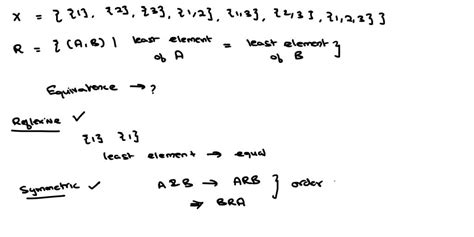 X = { {1}, {2}, {3}, {1,2}, {1,3}, {2,3}, {1,2,3} }
R = { (A,B) | least element of A = least element of B }
Equivalence → ?
Reflexive ✓
{1} {1}
least element → equal
Symmetric ✓ A & B → ARB } order
→ BRA